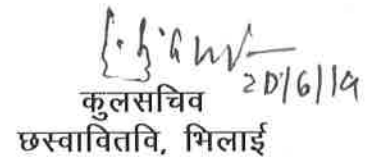 20/6/19
कुलसचिव
छस्वावितवि, भिलाई